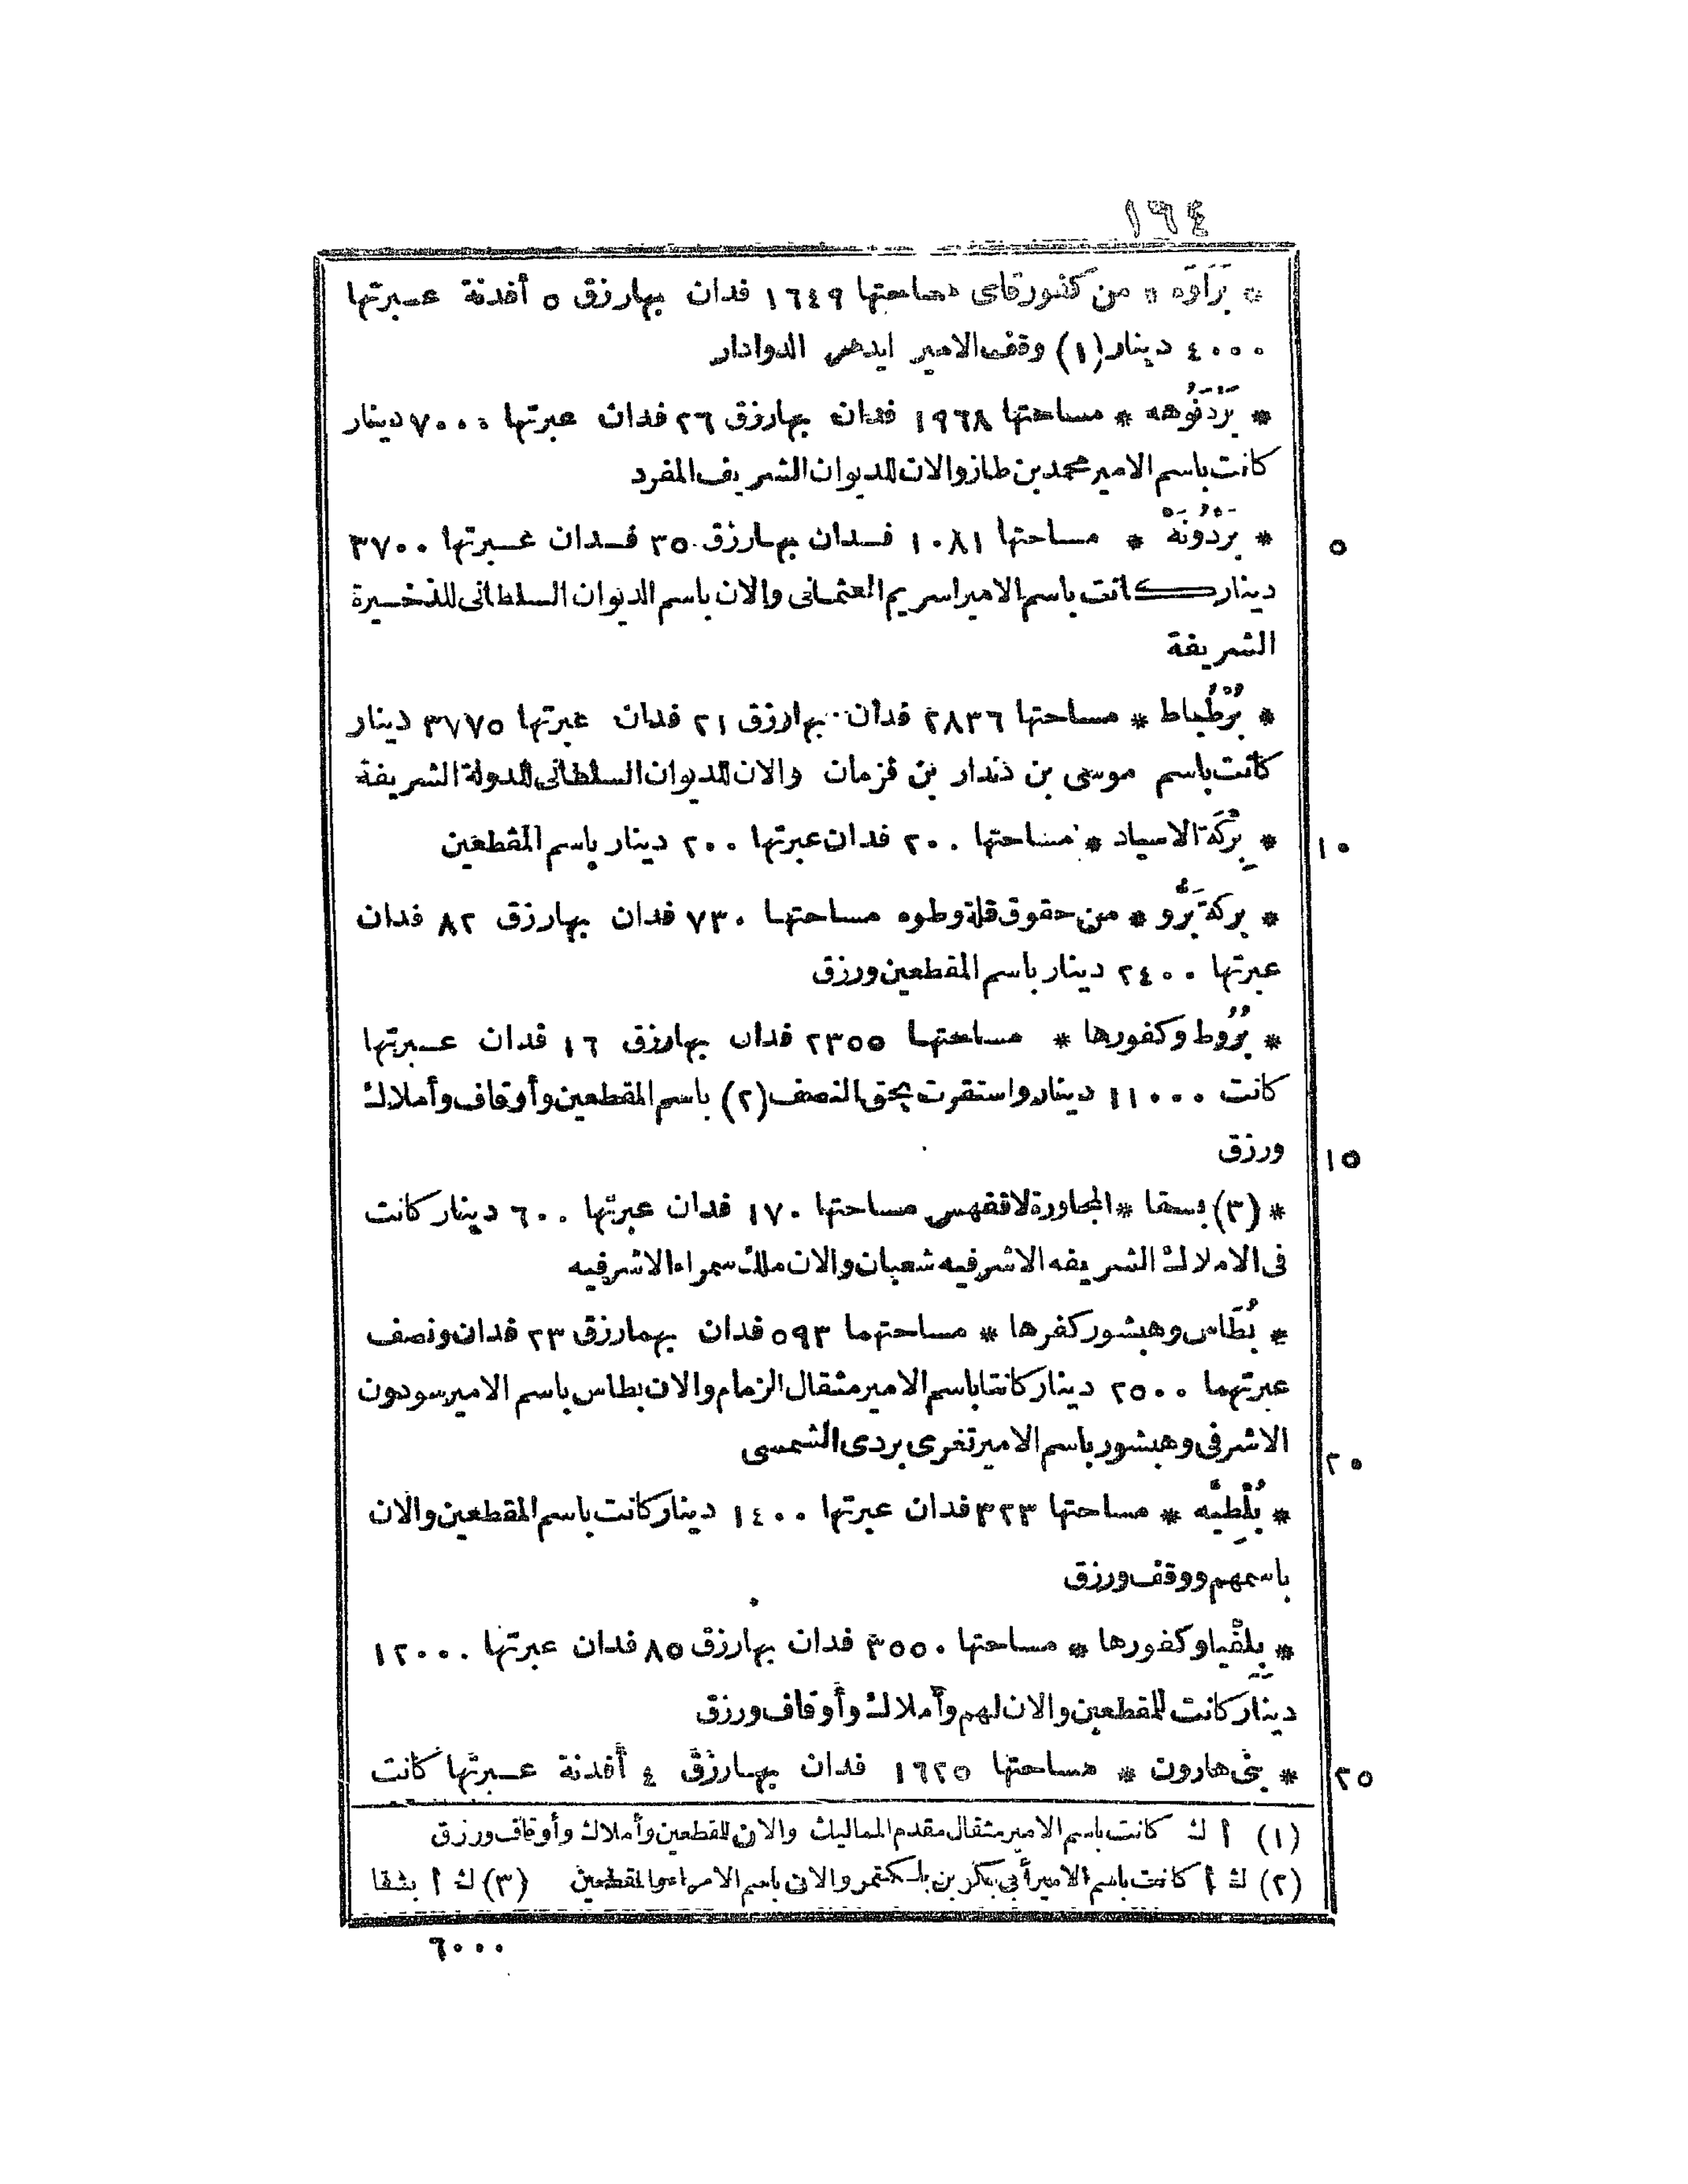 ١٦٤
* بَرَاوَه * من كفور قاى مساحتها ١٦٤٩ فدان بها رزق ٥ أفدنة عبرتها
٤٠٠٠ دينار (١) وقف الامير ايدمر الدوادار
* بَرْدَنُوهه * مساحتها ١٩٦٨ فدان بها رزق ٢٦ فدان عبرتها ٧٠٠٠ دينار
كانت باسم الامير محمد بن طاز والان للديوان الشريف المفرد
* بَرْدُونَةْ * مساحتها ١٠٨١ فدان بها رزق ٣٥ فدان عبرتها ٣٧٠٠
٥
دينار كانت باسم الامير اسريم العثمانى والان باسم الديوان السلطانى للذخيرة
الشريفة
* بُرْطُباط * مساحتها ٢٨٣٦ فدان بها رزق ٢١ فدان عبرتها ٣٧٧٥ دينار
كانت باسم موسى بن دندار بن قزمان والان للديوان السلطانى للدولة الشريفة
* بِرْكَة الاسياد * مساحتها ٢٠٠ فدان عبرتها ٢٠٠ دينار باسم المقطعين
١٠
* بركة بَرُّو * من حقوق قلة وطوه مساحتها ٧٣٠ فدان بها رزق ٨٢ فدان
عبرتها ٢٤٠٠ دينار باسم المقطعين ورزق
* بُرُوط وكفورها * مساحتها ٢٣٥٥ فدان بها رزق ١٦ فدان عبرتها
كانت ١١٠٠٠ دينار واستقرت بحق النصف (٢) باسم المقطعين وأوقاف وأملاك
ورزق
١٥
* (٣) بسقا * المجاورة لاقفهس مساحتها ١٧٠ فدان عبرتها ٦٠٠ دينار كانت
فى الاملاك الشريفه الاشرفيه شعبان والان ملك سمراء الاشرفيه
* بُطَاس وهبشور كفرها * مساحتهما ٥٩٣ فدان بهما رزق ٢٣ فدان ونصف
عبرتهما ٢٥٠٠ دينار كانتا باسم الامير مثقال الزمام والان بطاس باسم الامير سودون
الاشرفى وهبشور باسم الامير تغرى بردى الشمسى
٢٠
* بُلْطِيَّه * مساحتها ٣٢٣ فدان عبرتها ١٤٠٠ دينار كانت باسم المقطعين والان
باسمهم ووقف ورزق
* بِلِفْيا وكفورها * مساحتها ٣٥٥٠ فدان بها رزق ٨٥ فدان عبرتها ١٢٠٠٠
دينار كانت للمقطعين والان لهم وأملاك وأوقاف ورزق
* بنى هارون * مساحتها ١٦٢٥ فدان بها رزق ٤ أفدنة عبرتها كانت
٢٥
(١) أ ك كانت باسم الامير مثقال مقدم المماليك والان للمقطعين وأملاك وأوقاف ورزق
(٢) ك أ كانت باسم الامير أبى بكر بن بلكتمر والان باسم الامراء والمقطعين (٣) ك أ بشقا
٦٠٠٠